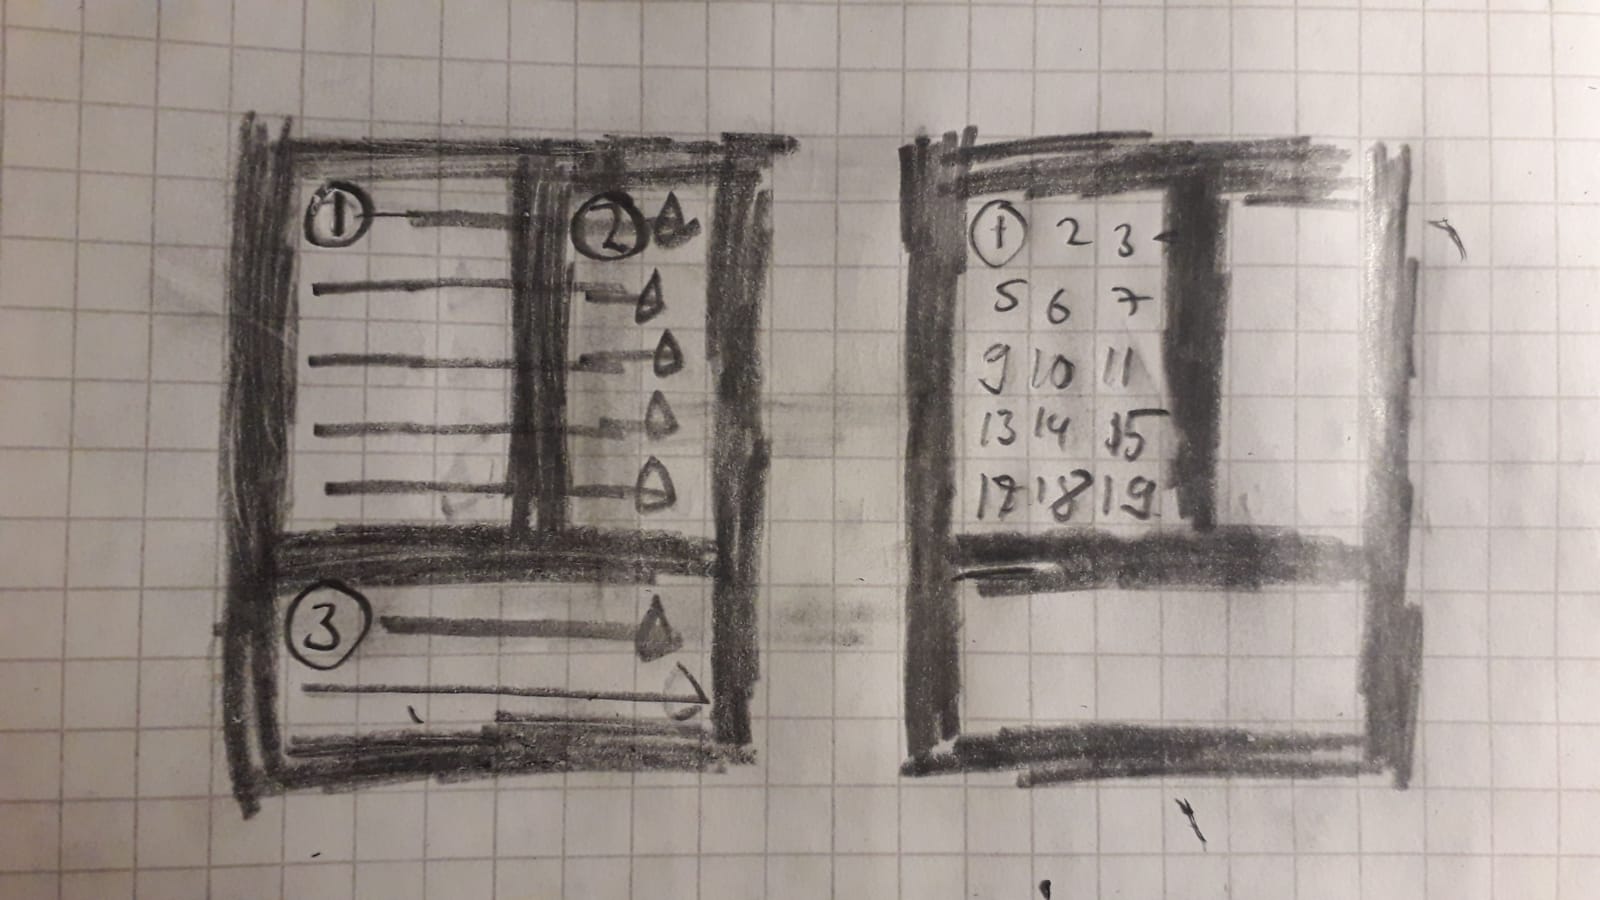 1 2
3
1 2 3
5 6 7
9 10 11
13 14 15
17 18 19